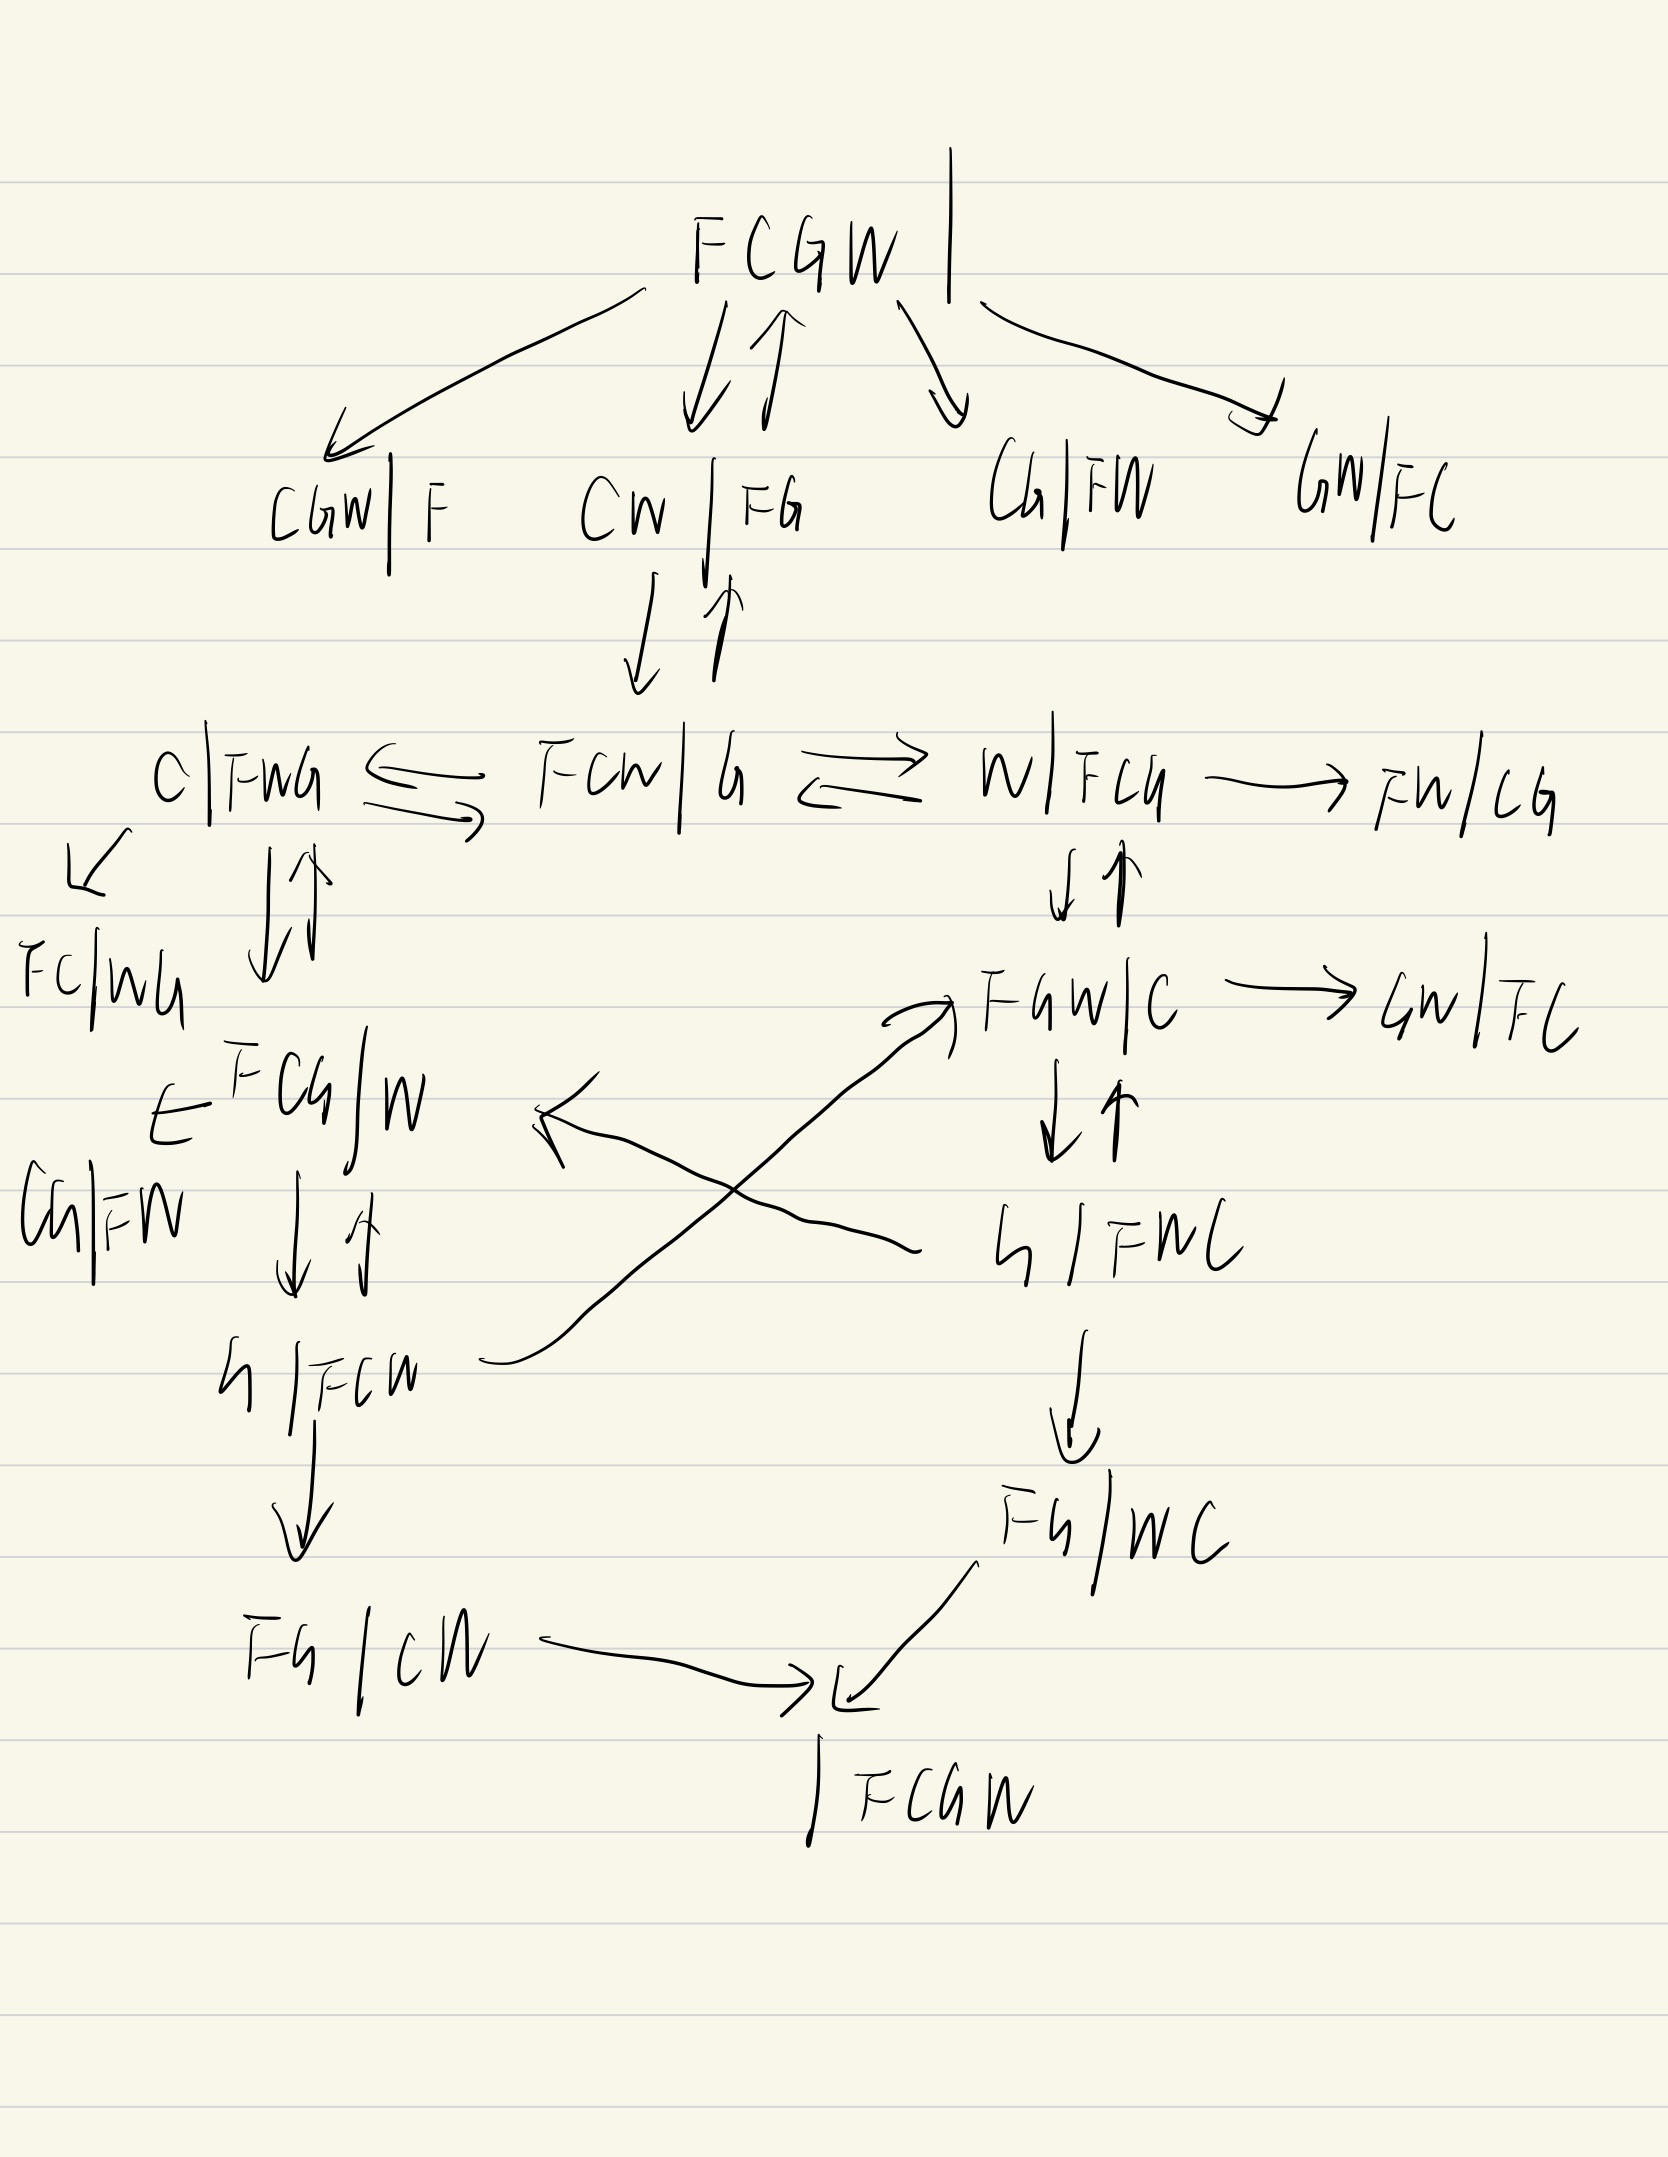 FCGW |
CGW | F CW | FG CG | FW GW | FC
C | FWG FCW | G W | FCG FW | CG
FC | WG FGW | C GW | FC
FCG | W
CG | FW G | FWC
G | FCW
FG | WC
FG | CW
| FCGW